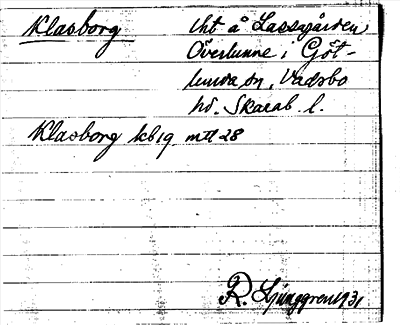 Klasborg
lht å Lassgården,
Överlunne i Göt-
lunda sn, Vadsbo
hd. Skarab. l.
Klasborg kb 19 mtl 28
R. Ljunggren 1931